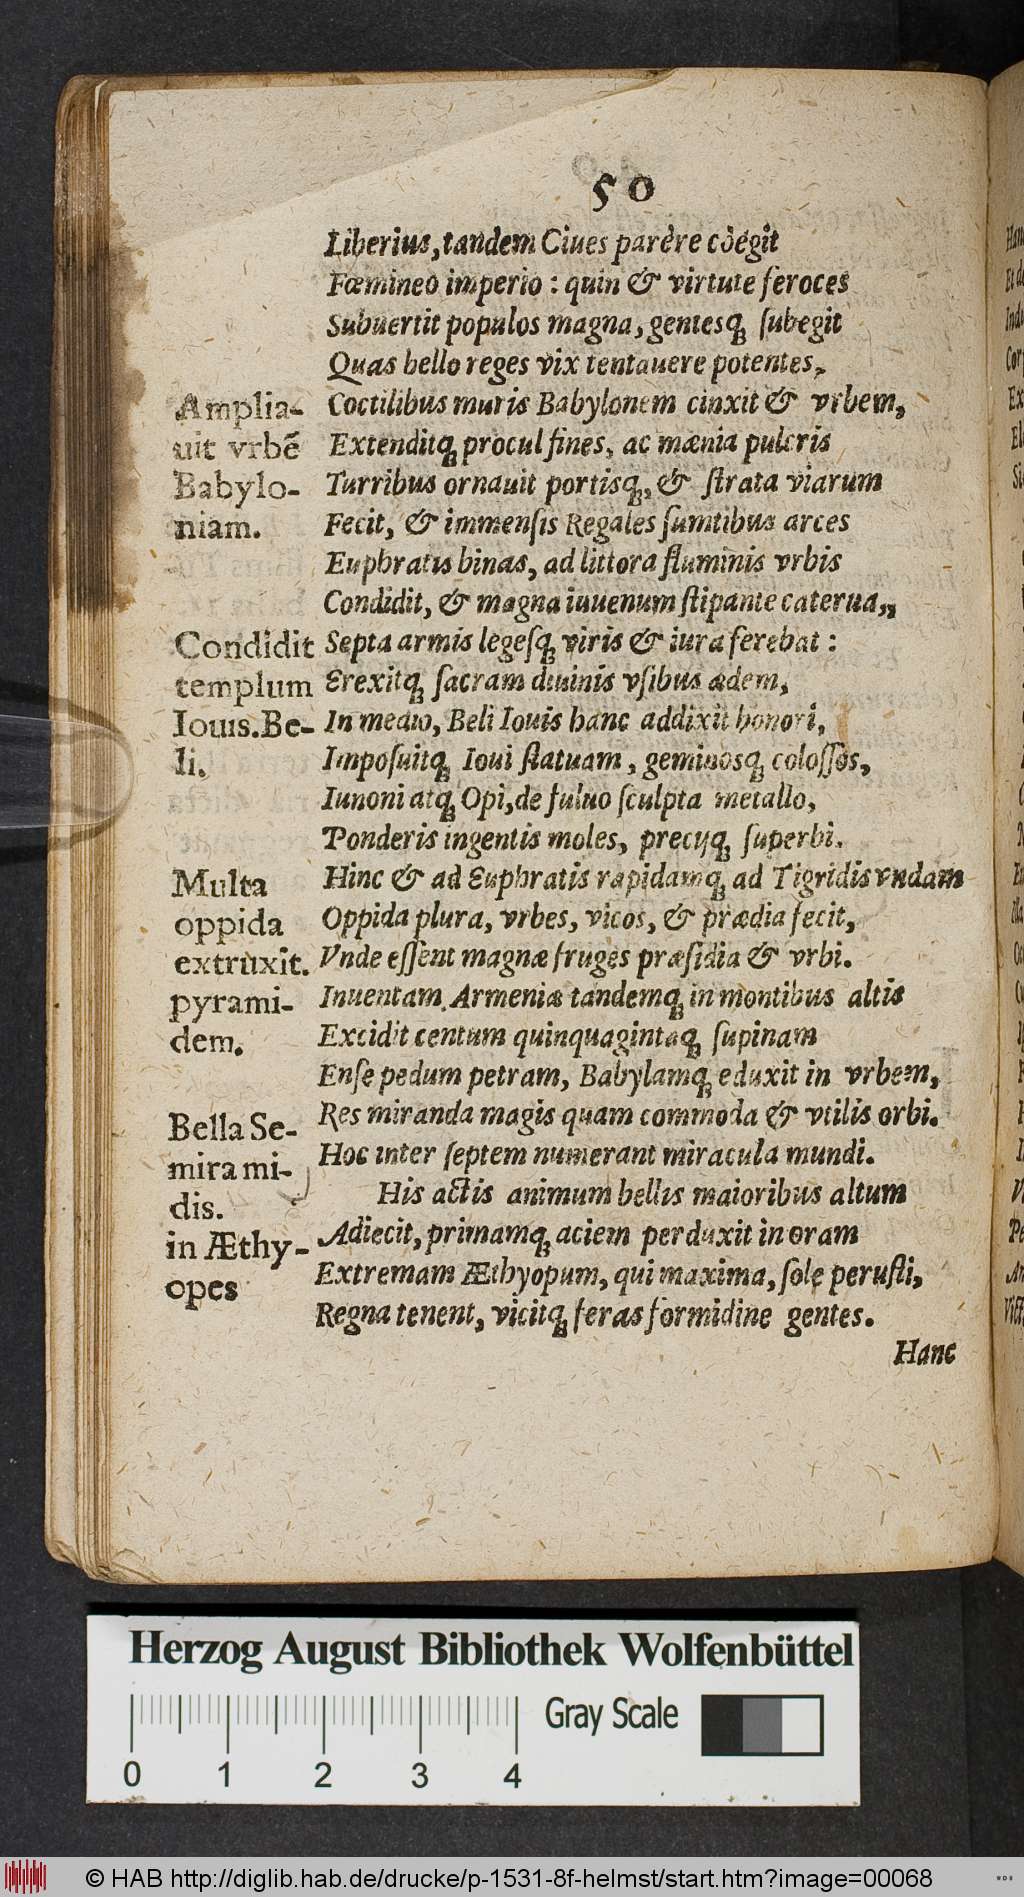 50
Liberius, tandem Ciues parêre coëgit
Fœmineo imperio : quin & virtute feroces
Subuertit populos magna, gentesq; ſubegit
Quas bello reges vix tentauere potentes,
Amplia-
uit vrbē
Babylo-
niam.
Coctilibus muris Babylonem cinxit & vrbem,
Extenditq; procul fines, ac mænia pulcris
Turribus ornauit portisq;, & ſtrata viarum
Fecit, & immenſis Regales ſumtibus arces
Euphratis binas, ad littora fluminis vrbis
Condidit, & magna iuuenum ſtipante caterua,
Condidit
templum
Iouis.Be-
li.
Septa armis legeſq; viris & iura ferebat :
Erexitq; ſacram diuinis vſibus ædem,
In medio, Beli Iouis hanc addixit honori,
Impoſuitq; Ioui ſtatuam, geminosq; coloſſos,
Iunoni atq; Opi, de fuluo ſculpta metallo,
Ponderis ingentis moles, precijq; ſuperbi.
Multa
oppida
extruxit.
pyrami-
dem.
Hinc & ad Euphratis rapidamq; ad Tigridis vndam
Oppida plura, vrbes, vicos, & prædia fecit,
Vnde eſſent magnæ fruges præſidia & vrbi.
Inuentam Armeniæ tandemq; in montibus altis
Excidit centum quinquagintaq; ſupinam
Enſe pedum petram, Babylamq; eduxit in vrbem,
Bella Se-
mirami-
dis.
in Æthy-
opes
Res miranda magis quam commoda & vtilis orbi.
Hoc inter ſeptem numerant miracula mundi.
His actis animum bellis maioribus altum
Adiecit, primamq; aciem perduxit in oram
Extremam Æthyopum, qui maxima, ſole peruſti,
Regna tenent, vicitq; feras formidine gentes.
Hanc
Herzog August Bibliothek Wolfenbüttel
Gray Scale
0 1 2 3 4
© HAB http://diglib.hab.de/drucke/p-1531-8f-helmst/start.htm?image=00068